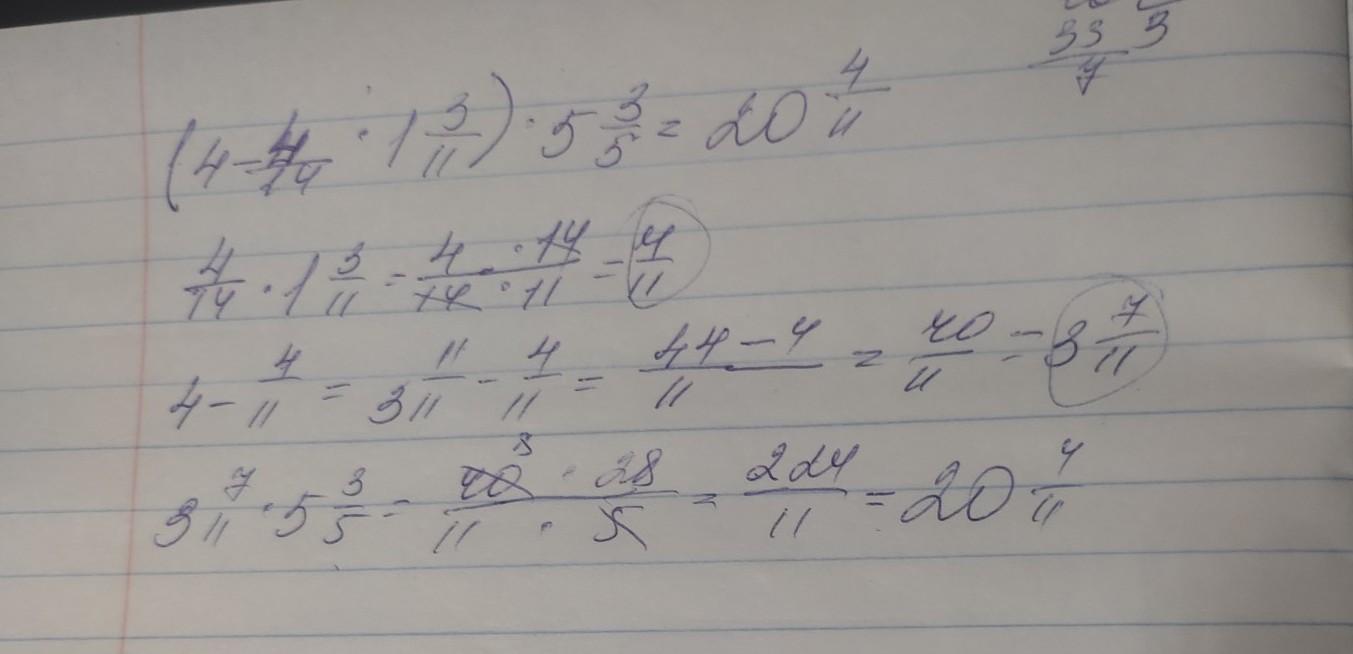 33 3
7
(4 - 4/14 · 1 3/11) · 5 3/5 = 20 4/11
4/14 · 1 3/11 = 4 · 14 / 14 · 11 = 4/11
4 - 4/11 = 3 11/11 - 4/11 = 44 - 4 / 11 = 40/11 = 3 7/11
3 7/11 · 5 3/5 = 40 8 · 28 / 11 · 5 = 224/11 = 20 4/11